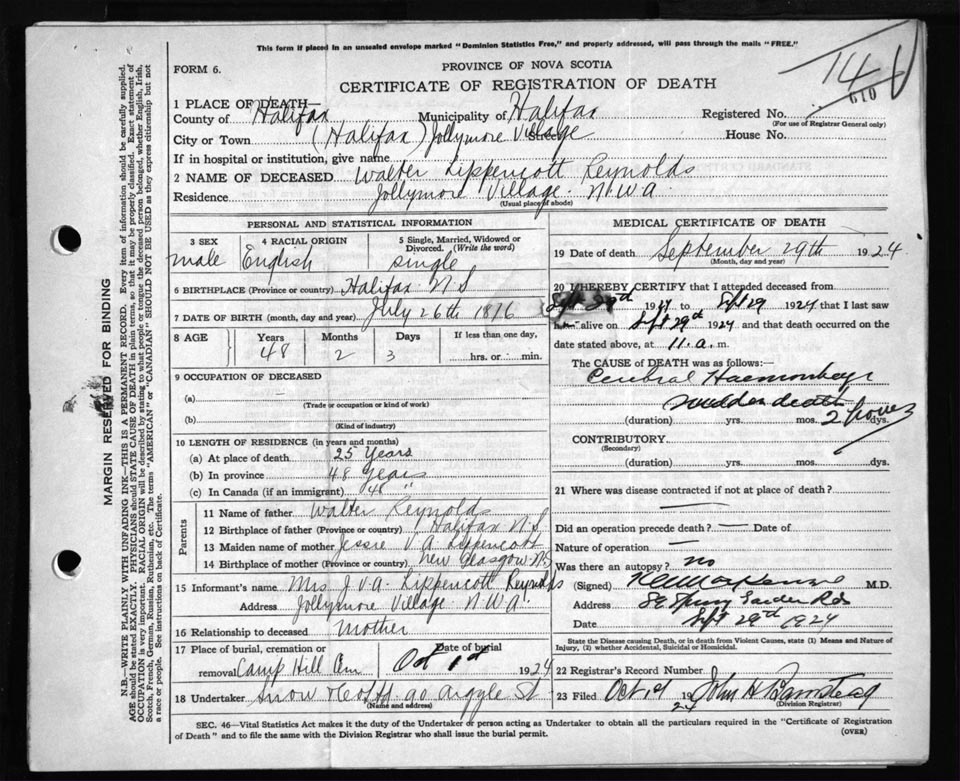 This form if placed in an unsealed envelope marked "Dominion Statistics Free," and properly addressed, will pass through the mails "FREE."
FORM 6.
PROVINCE OF NOVA SCOTIA
CERTIFICATE OF REGISTRATION OF DEATH
146
610
1 PLACE OF DEATH—
County of Halifax Municipality of Halifax Registered No.
(For use of Registrar General only)
City or Town (Halifax) Jollymore Village Street House No.
If in hospital or institution, give name
2 NAME OF DECEASED Walter Lippencott Reynolds
Residence Jollymore Village. N.W.A.
(Usual place of abode)
PERSONAL AND STATISTICAL INFORMATION
3 SEX 4 RACIAL ORIGIN 5 Single, Married, Widowed or Divorced. (Write the word)
male English single
6 BIRTHPLACE (Province or country) Halifax N.S
7 DATE OF BIRTH (month, day and year) July 26th 1876
8 AGE Years Months Days If less than one day,
48 2 3 hrs. or min.
9 OCCUPATION OF DECEASED
(a) —
(Trade or occupation or kind of work)
(b)
(Kind of industry)
10 LENGTH OF RESIDENCE (in years and months)
(a) At place of death 25 Years
(b) In province 48 Years
(c) In Canada (if an immigrant) 48 "
Parents
11 Name of father Walter Reynolds
12 Birthplace of father (Province or country) Halifax N.S
13 Maiden name of mother Jessie V.A. Lippencott
14 Birthplace of mother (Province or country) New Glasgow NS
15 Informant's name Mrs J.V.A. Lippencott Reynolds
Address Jollymore Village N.W.A.
16 Relationship to deceased mother
17 Place of burial, cremation or removal Camp Hill Cem Date of burial Oct 1st 1924
18 Undertaker Snow & Co Ltd 90 Argyle St
(Name and address)
MEDICAL CERTIFICATE OF DEATH
19 Date of death September 29th 1924
(Month, day and year)
20 I HEREBY CERTIFY that I attended deceased from
Sept 29th 1924 to Sept 29 1924 that I last saw
him alive on Sept 29th 1924 and that death occurred on
date stated above, at 11. a. m.
The CAUSE of DEATH was as follows:—
Cerebral Haemorrhage
sudden death
(duration) yrs. mos. 2 hours dys.
CONTRIBUTORY
(Secondary)
(duration) yrs. mos. dys.
21 Where was disease contracted if not at place of death?
—
Did an operation precede death? — Date of
Nature of operation —
Was there an autopsy? no
(Signed) M.D.
Address Spring Garden Rd
Date Sept 29th 1924
State the Disease causing Death, or in death from Violent Causes, state (1) Means and Nature of Injury, (2) whether Accidental, Suicidal or Homicidal.
22 Registrar's Record Number
23 Filed Oct 1st 1924 John H Barnstead
(Division Registrar)
SEC. 46—Vital Statistics Act makes it the duty of the Undertaker or person acting as Undertaker to obtain all the particulars required in the "Certificate of Registration
of Death" and to file the same with the Division Registrar who shall issue the burial permit. (OVER)
MARGIN RESERVED FOR BINDING
N.B.—WRITE PLAINLY WITH UNFADING INK—THIS IS A PERMANENT RECORD. Every item of information should be carefully supplied.
AGE should be stated EXACTLY. PHYSICIANS should STATE CAUSE OF DEATH in plain terms, so that it may be properly classified. Exact statement of
OCCUPATION is very important. RACIAL ORIGIN will be described by stating to what people or tongue the deceased person belonged, whether English, Irish,
Scotch, French, German, Russian, Ruthenian, etc. The terms "AMERICAN" or "CANADIAN" SHOULD NOT BE USED as they express citizenship but not
a race or people. See instructions on back of Certificate.